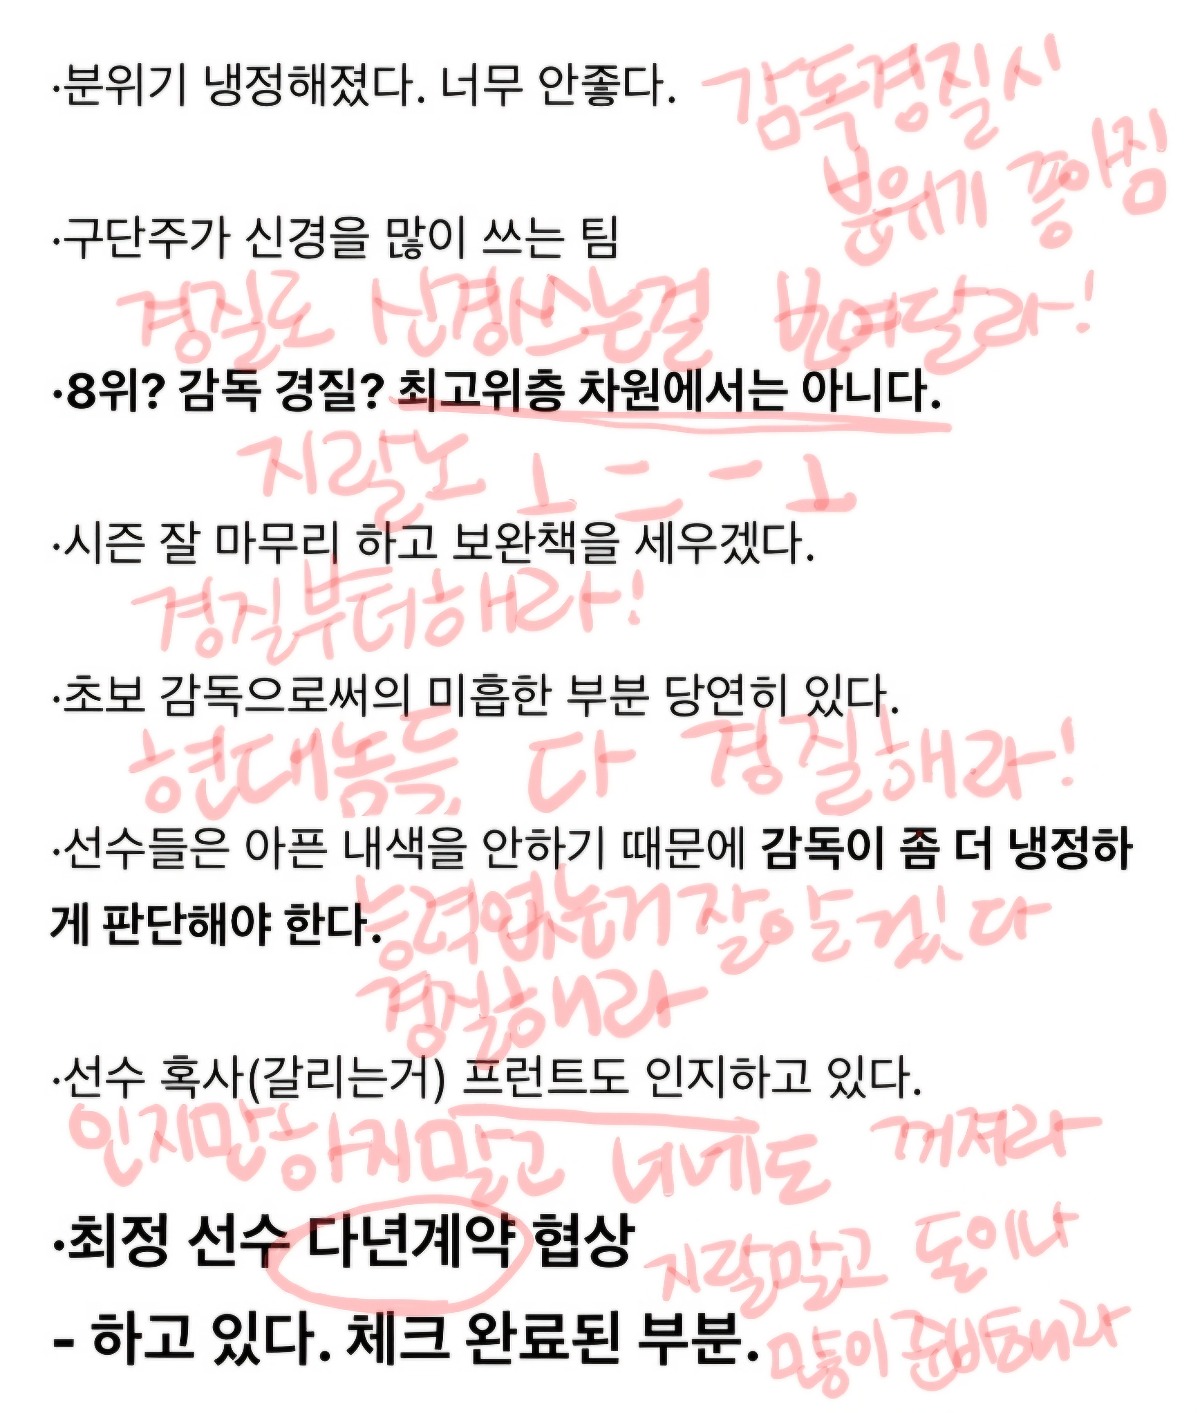 ·분위기 냉정해졌다. 너무 안좋다.
감독경질시
분위기 좋아짐
·구단주가 신경을 많이 쓰는 팀
경질로 신경쓰는걸 보여달라!
·8위? 감독 경질? 최고위층 차원에서는 아니다.
지랄노
·시즌 잘 마무리 하고 보완책을 세우겠다.
경질부터해라!
·초보 감독으로써의 미흡한 부분 당연히 있다.
현대놈들 다 경질해라!
·선수들은 아픈 내색을 안하기 때문에 감독이 좀 더 냉정하
게 판단해야 한다.
능력없는거잘알겠다
경질해라
·선수 혹사(갈리는거) 프런트도 인지하고 있다.
인지만하지말고 너네도 꺼져라
·최정 선수 다년계약 협상
지랄말고 돈이나
- 하고 있다. 체크 완료된 부분.
많이준비해라